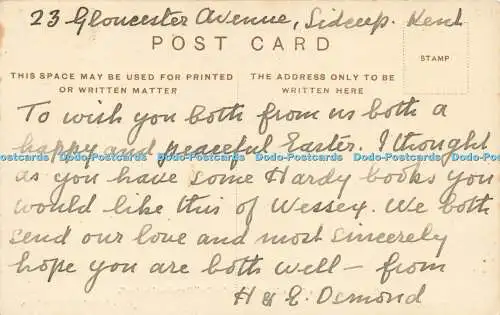 23 Gloucester Avenue, Sidcup. Kent
POST CARD
STAMP
THIS SPACE MAY BE USED FOR PRINTED
OR WRITTEN MATTER
THE ADDRESS ONLY TO BE
WRITTEN HERE
To wish you both from us both a
happy and peaceful Easter. I thought
Dodo-Postcards Dodo-Postcards Dodo-Postcards Dodo-Postcards Dodo-Postcards Dodo-Postcards
as you have some Hardy books you
would like this of Wessex. We both
send our love and most sincerely
hope you are both well — from
H & E. Osmond